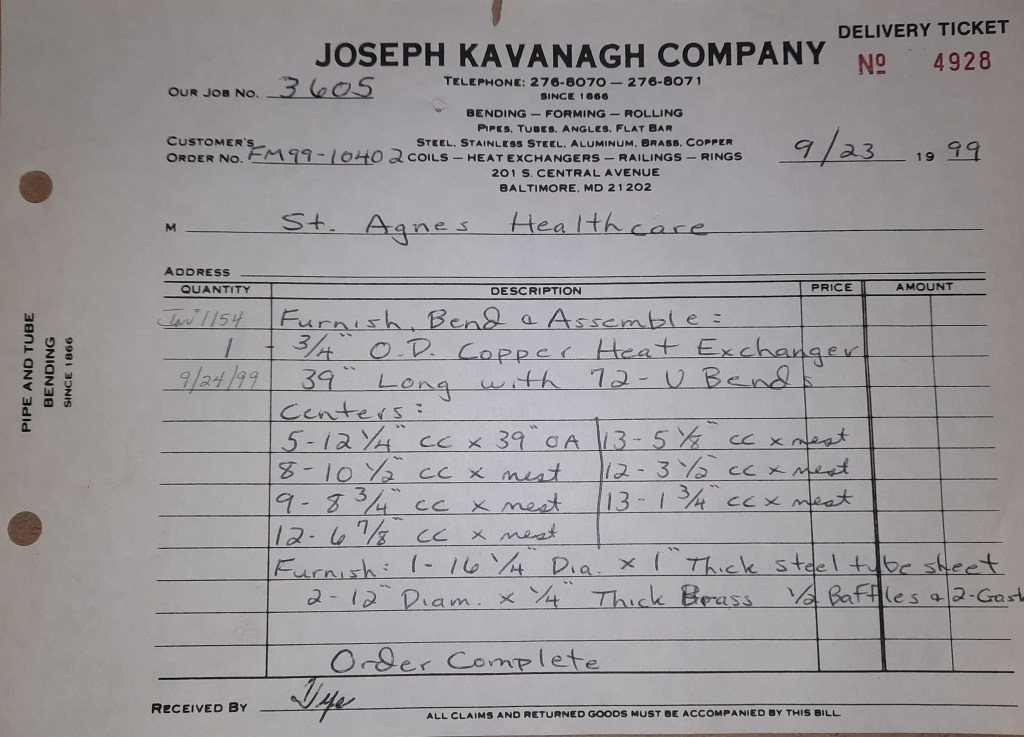 DELIVERY TICKET
JOSEPH KAVANAGH COMPANY
Nº 4928
OUR JOB NO. 3605
TELEPHONE: 276-8070 — 276-8071
SINCE 1866
BENDING — FORMING — ROLLING
PIPES, TUBES, ANGLES, FLAT BAR
CUSTOMER'S
ORDER NO. FM99-10402
STEEL, STAINLESS STEEL, ALUMINUM, BRASS, COPPER
COILS — HEAT EXCHANGERS — RAILINGS — RINGS
9/23 19 99
201 S. CENTRAL AVENUE
BALTIMORE, MD 21202
M St. Agnes Healthcare
ADDRESS
QUANTITY DESCRIPTION PRICE AMOUNT
Inv# 1154 Furnish, Bend & Assemble:
1 - 3/4" O.D. Copper Heat Exchanger
9/24/99 39" Long with 72-U Bends
Centers:
5-12 1/4" cc x 39" OA 13-5 1/8" cc x nest
8-10 1/2" cc x nest 12-3 1/2" cc x nest
9-8 3/4" cc x nest 13-1 3/4" cc x nest
12-6 7/8" cc x nest
Furnish: 1-16 1/4" Dia. x 1" Thick steel tube sheet
2-12" Diam. x 1/4" Thick Brass 1/2 Baffles & 2-Gask
Order Complete
RECEIVED BY
ALL CLAIMS AND RETURNED GOODS MUST BE ACCOMPANIED BY THIS BILL
PIPE AND TUBE
BENDING
SINCE 1866